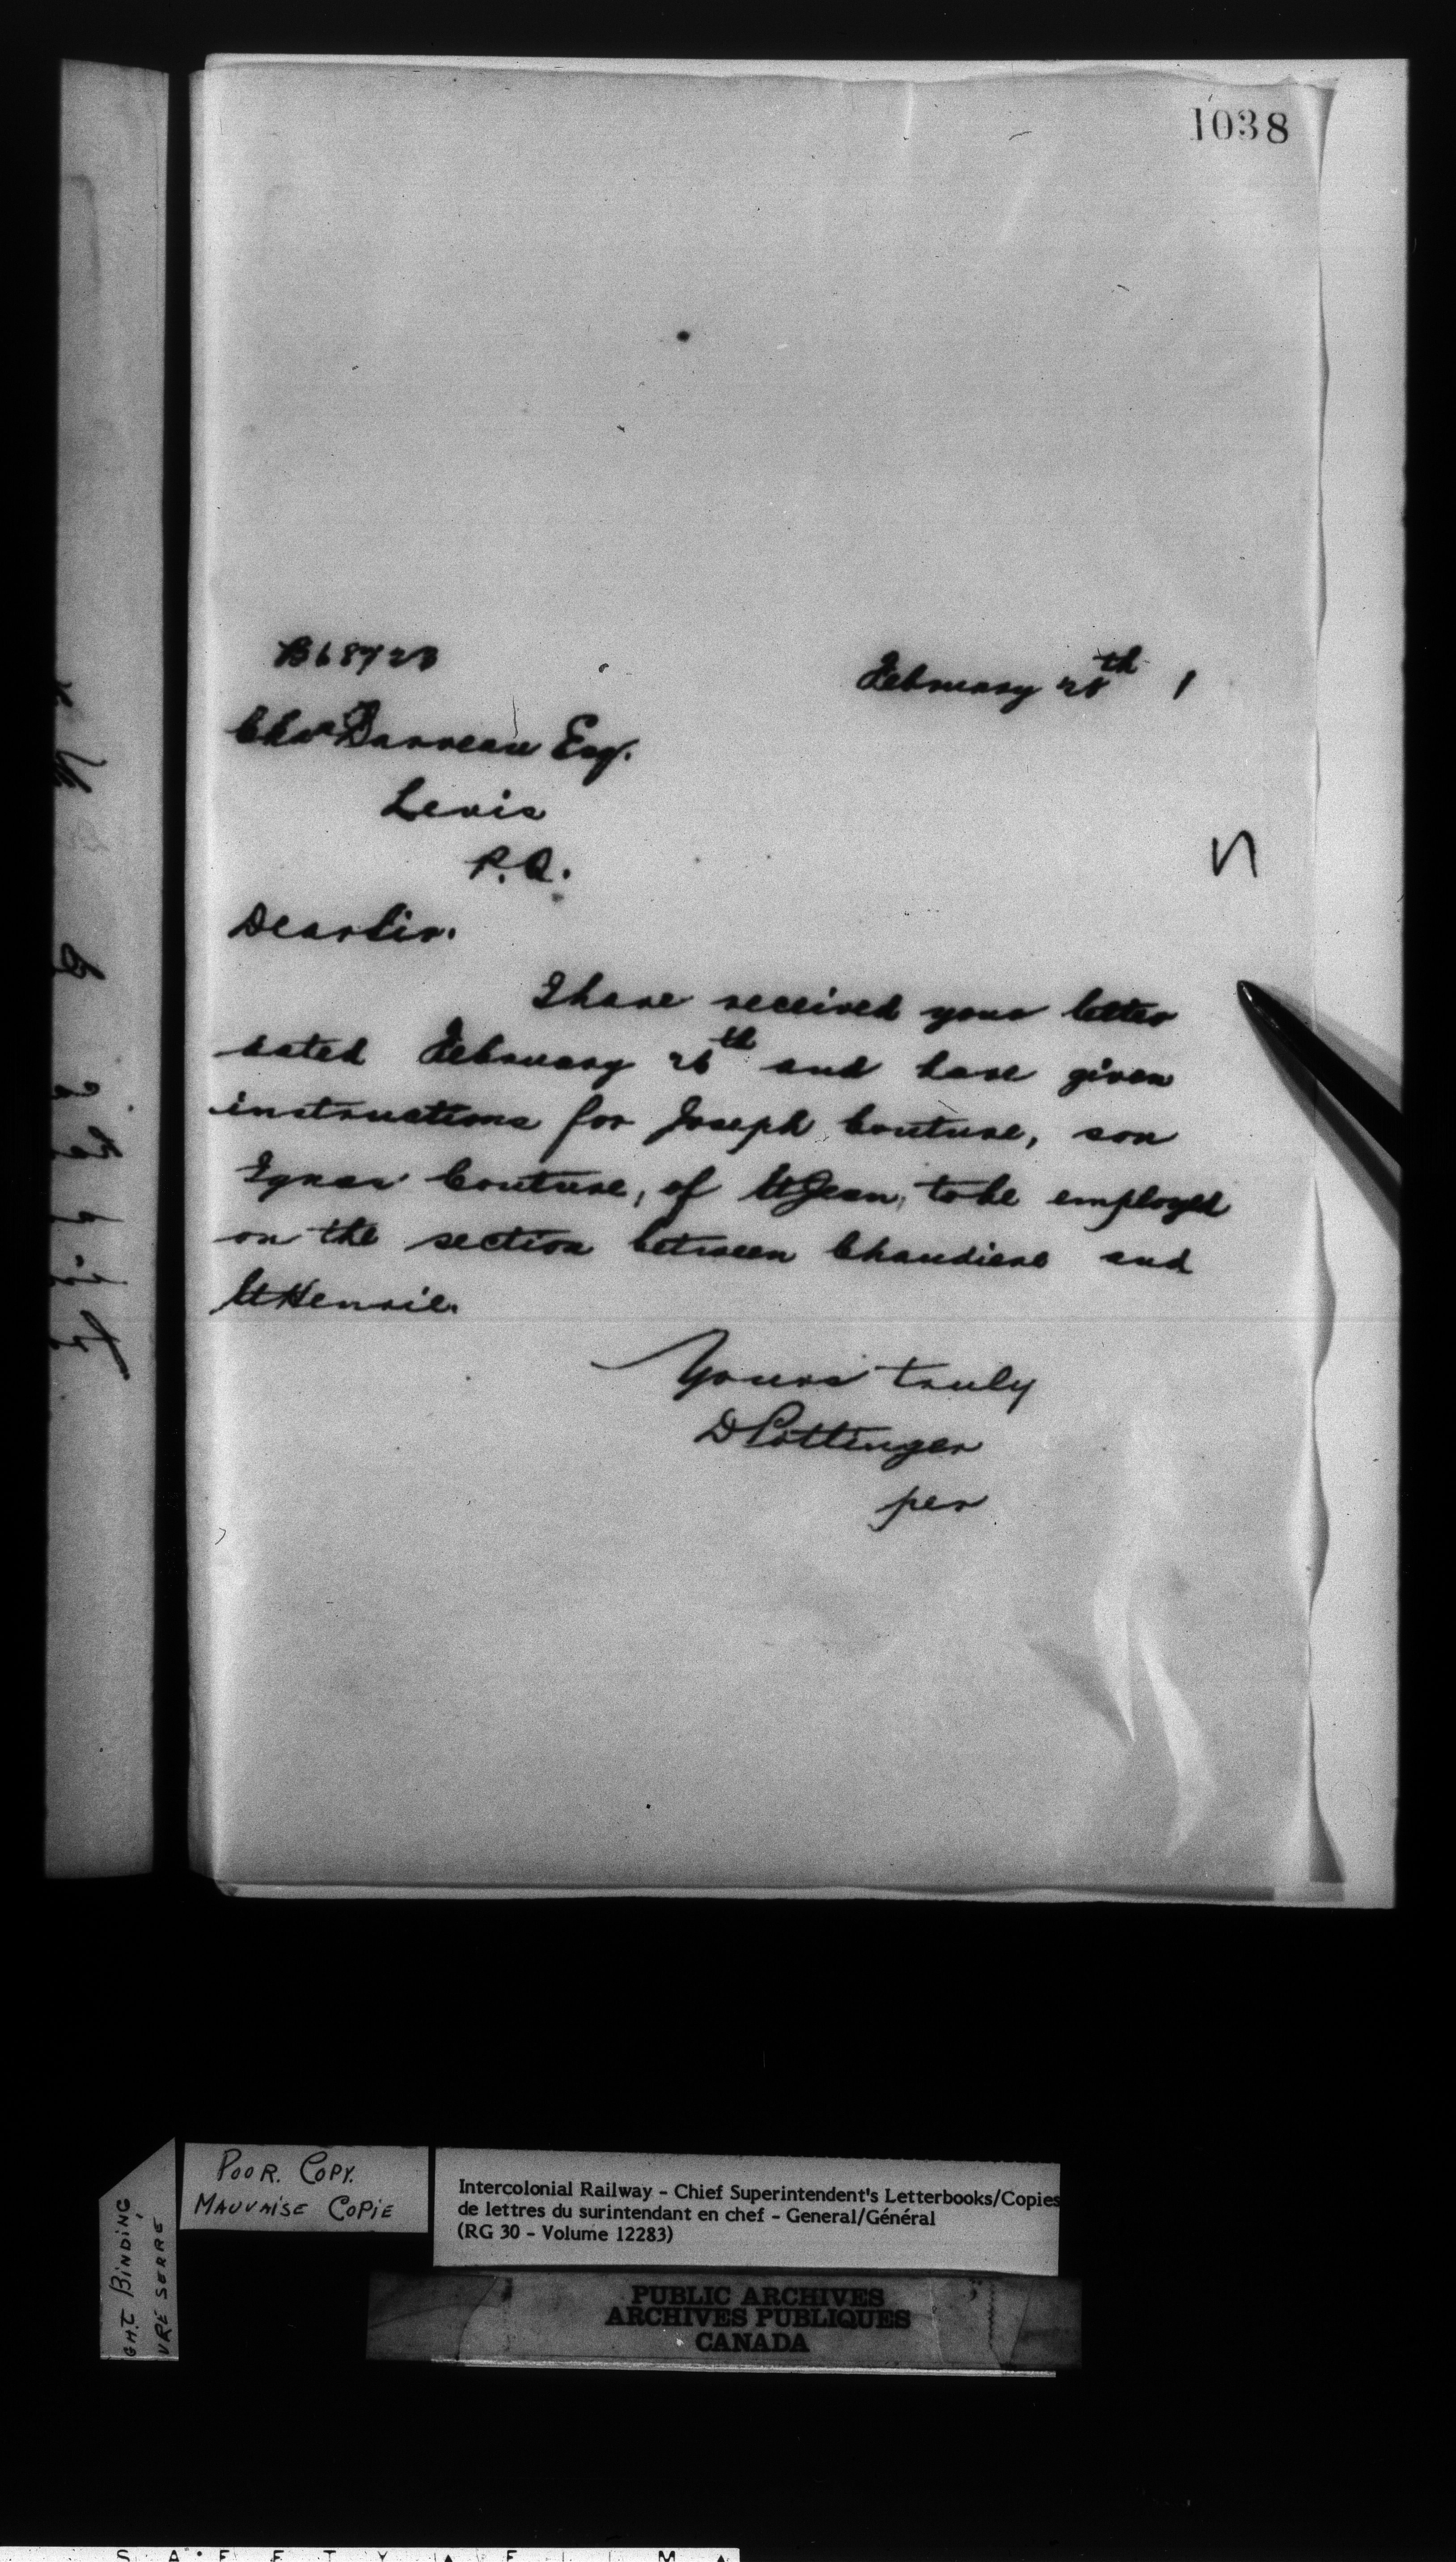 1038
B68723
February 28th 1
Chas Darveau Esq.
Levis
P.Q.
Dear Sir.
I have received your letter
dated February 26th and have given
instructions for Joseph Couture, son
Ignas Couture, of St Jean, to be employed
on the section between Chaudiere and
St Henrie.
Yours truly
D Pottinger
per
POOR. COPY.
MAUVAISE COPIE
GHT BINDING
VRE SERRÉ
Intercolonial Railway - Chief Superintendent's Letterbooks/Copies
de lettres du surintendant en chef - General/Général
(RG 30 - Volume 12283)
PUBLIC ARCHIVES
ARCHIVES PUBLIQUES
CANADA